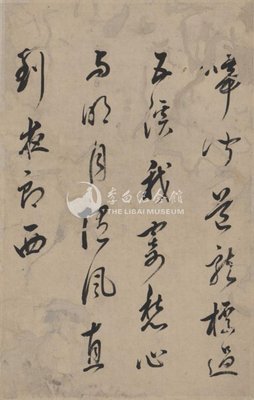 啼聞道龍標過
五溪我寄愁心
与明月隨風直
到夜郎西
李白纪念馆
THE LIBAI MUSEUM